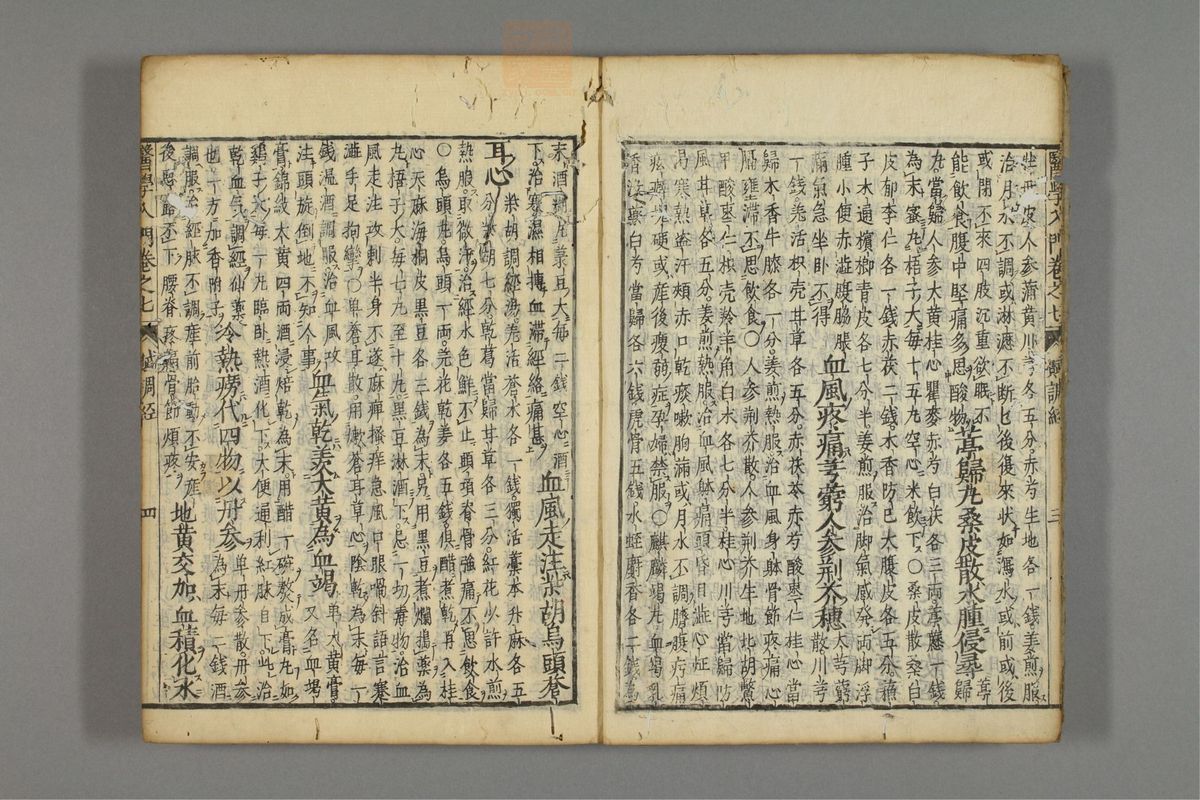 醫學入門卷之七 婦調經 三
牡丹皮人參黃川芎各五分赤芍生地各一錢姜煎服
治月水不調或淋瀝不断乜後復來状如瀉水或前或後
或閉不來四肢沉重欲眠不
能飲食腹中堅痛多思酸物葶歸丸桑皮散水腫侵尋
丸當歸人參大黄桂心瞿麥赤芍白茯各三兩葶藶一錢
為末蜜丸梧子大每十五丸空心米飲下〇桑皮散桑白
皮郁李仁各一錢赤茯二錢木香防已大腹皮各五分蘇
子木通檳榔青皮各七分半姜煎服治脚氣感発両脚浮
腫小便赤澁腹脇脹
滿氣急坐卧不得血風疼痛羌芎人參荊芥穗
一錢羌活枳壳甘草各五分赤茯苓赤芍酸棗仁桂心當
歸木香牛膝各一分姜煎熱服治血風身躰骨節疼痛心
膈壅滞不思飲食〇人參荊芥散人參荊芥生地北胡鱉
甲酸棗仁枳壳羚羊角白朮各七分半桂心川芎當歸防
風甘草各五分姜煎熱服治血風躰痛頭昏目澁心怔煩
渴寒熱盗汗頰赤口乾痰嗽胸滿或月水不調臍腹疞痛
痃癖堆硬或産後痩弱症孕婦禁服〇麒麟竭丸血竭乳
香沒藥白芍當歸各六錢虎骨五錢水蛭麝香各二錢為
末酒糊丸菉豆大每二錢空心酒
下治寒濕相搏血滞經絡痛甚血風走注柴胡烏頭蒼
耳心柴胡調經湯羌活蒼朮各一錢獨活藁本升麻各五
分柴胡七分乾葛當歸甘草各三分紅花少許水煎
熱服取微汗治經水色鮮不止頭項脊骨強痛不思飲食
〇烏頭丸烏頭一兩芫花乾姜各五錢俱醋煮乾再入桂
心天麻海桐皮黒豆各三錢為末另用黒豆煮爛搗藥為
丸梧子大每七丸至十丸黒豆淋酒下忌一切毒物治血
風走注攻刺半身不遂麻痺搔痒急風口眼喎斜語言蹇
澁手足拘攣〇單蒼耳散用嫩蒼耳草心陰乾為末每一
錢温酒調服治血風攻
注頭旋倒地不知人事血氣乾姜大黄為血竭單大黄膏又名血竭
膏錦紋大黄四兩酒浸焙乾為末用醋一碗熬成膏丸如
雞子大每一丸臨卧熱酒化下大便通利紅脉自下此治
乾血氣調經仙藥
也一方加香附子冷熱癆代四物以丹參單丹參散丹參為末每二錢酒
調服治經脉不調産前胎動不安産
後惡露不下腰脊疼痛骨節煩疼地黄交加血積化水
醫學入門卷之七 婦調經 四